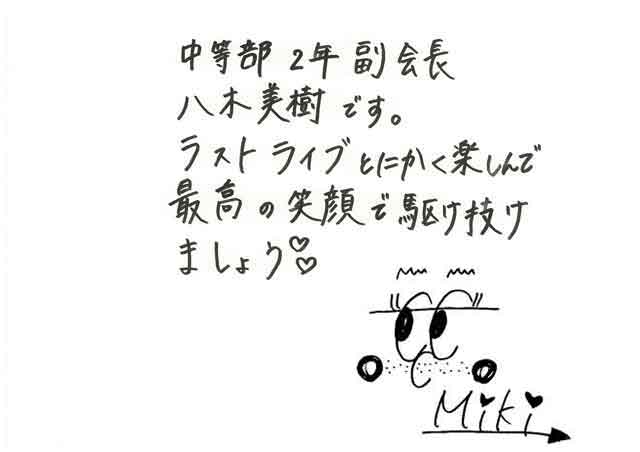 中等部 2年 副会長
八木美樹です。
ラストライブとにかく楽しんで
最高の笑顔で駆け技け
ましょう♡♡
Miki